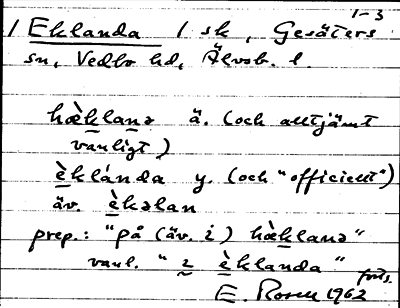 1-3
1 Eklanda 1 sk, Gesäters
sn, Vedbo hd, Älvsb. l.
hæ̀klanə ä. (och alltjämt
vanligt)
èklánda y. (och "officiellt")
äv. èkəlan
prep.: "på (äv. i) hæ̀klanə"
vanl. "i èklanda"
forts.
E. Rosen 1962